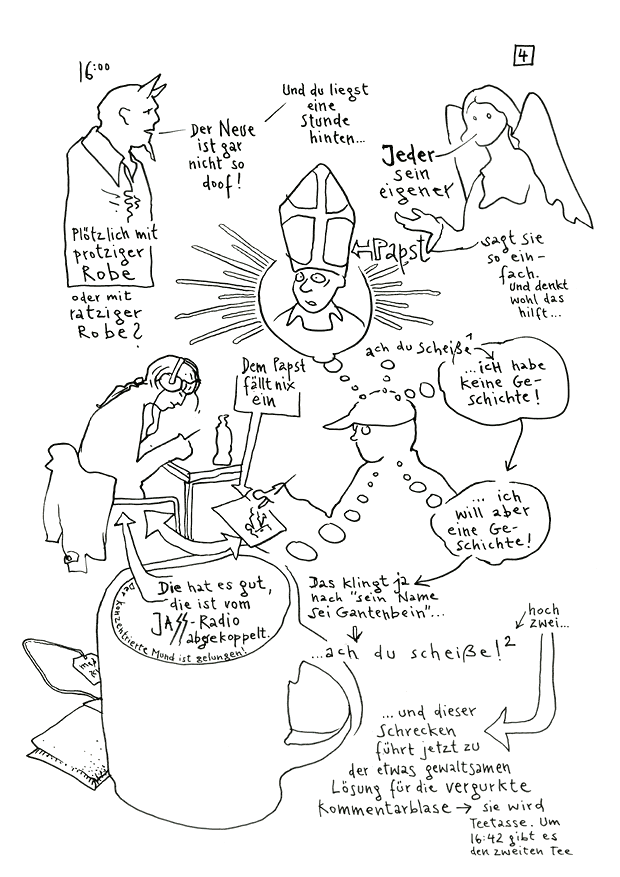 4
16:00
Und du liegst
eine
Stunde
hinten...
Der Neue
ist gar
nicht so
doof!
Jeder
sein
eigener
Papst
sagt sie
so ein-
fach.
Und denkt
wohl das
hilft...
Plötzlich mit
protziger
Robe
oder mit
ratziger
Robe?
ach du Scheiße
...ich habe
keine Ge-
schichte!
Dem Papst
fällt nix
ein
... ich
will aber
eine Ge-
schichte!
Das klingt ja
nach "sein Name
sei Gantenbein"...
Die hat es gut,
die ist vom
JAZZ-Radio
abgekoppelt.
Der konzentrierte Mund ist gelungen!
hoch
zwei...
...ach du scheiße!²
... und dieser
Schrecken
führt jetzt zu
der etwas gewaltsamen
Lösung für die vergurkte
Kommentarblase → sie wird
Teetasse. Um
16:42 gibt es
den zweiten Tee